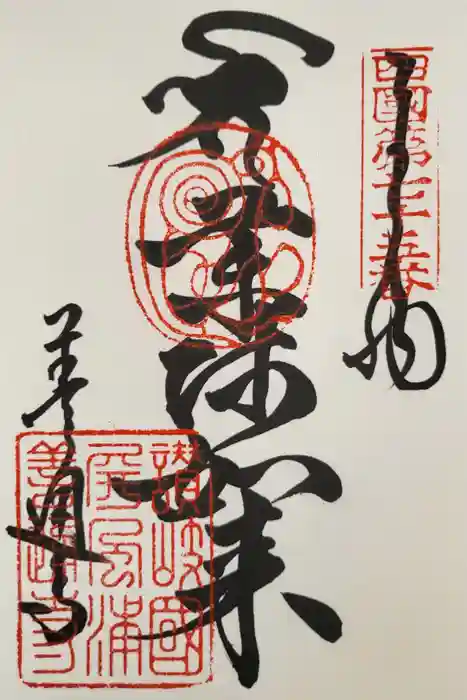 四國第七十五番
奉納
薬師如来
善通寺
讃岐國
屏風浦
善通寺